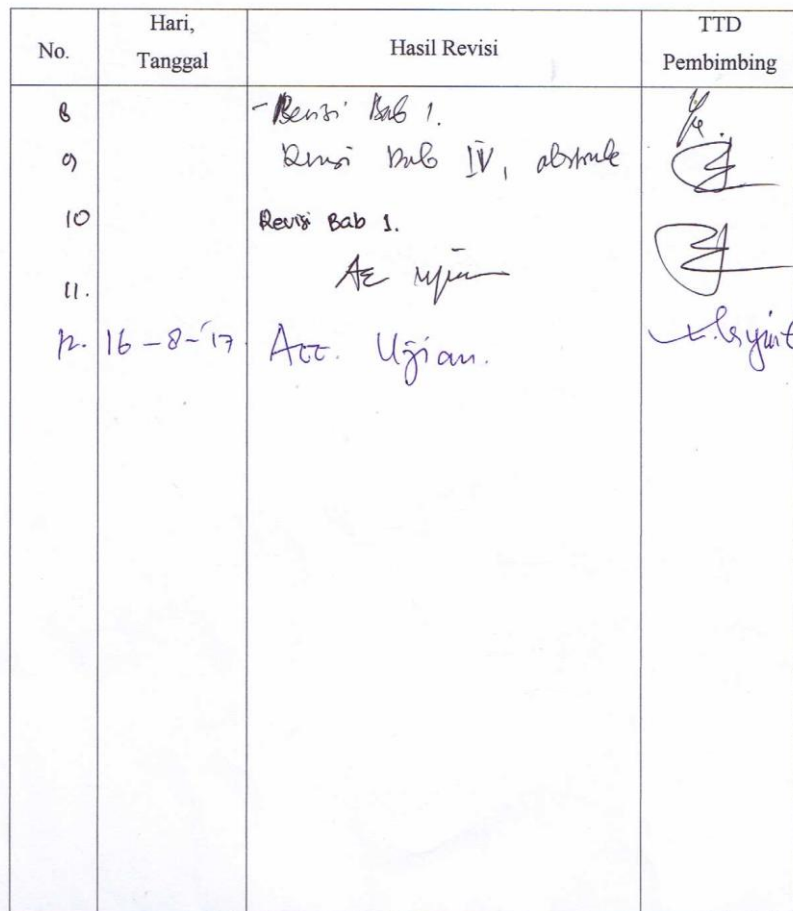 No. Hari, Tanggal Hasil Revisi TTD Pembimbing
8 - Revisi Bab 1.
9 Revisi Bab IV, abstrak
10 Revisi Bab 1.
11. Acc ujian
12. 16-8-'17 Acc. Ujian.